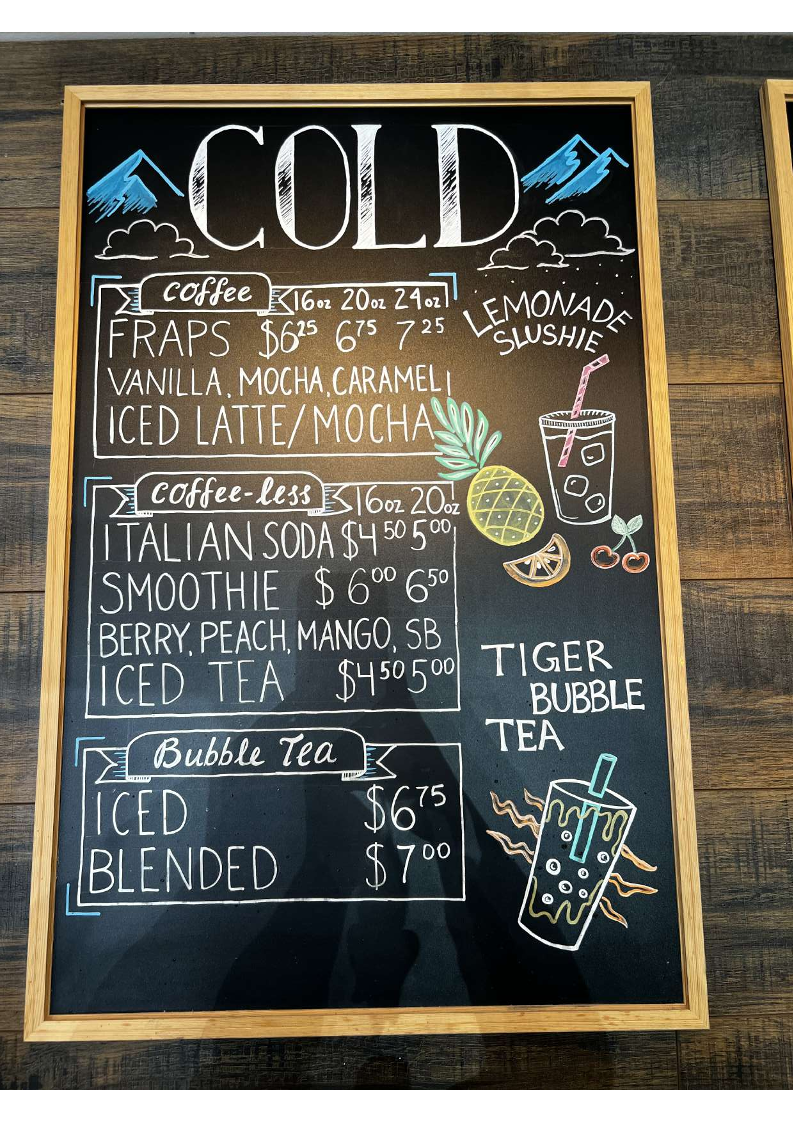 COLD
coffee 16oz 20oz 24oz
FRAPS $6²⁵ 6⁷⁵ 7²⁵
VANILLA, MOCHA, CARAMEL
ICED LATTE/MOCHA
LEMONADE
SLUSHIE
coffee-less 16oz 20oz
ITALIAN SODA $4⁵⁰ 5⁰⁰
SMOOTHIE $6⁰⁰ 6⁵⁰
BERRY, PEACH, MANGO, SB
ICED TEA $4⁵⁰ 5⁰⁰
TIGER
BUBBLE
TEA
Bubble Tea
ICED $6⁷⁵
BLENDED $7⁰⁰